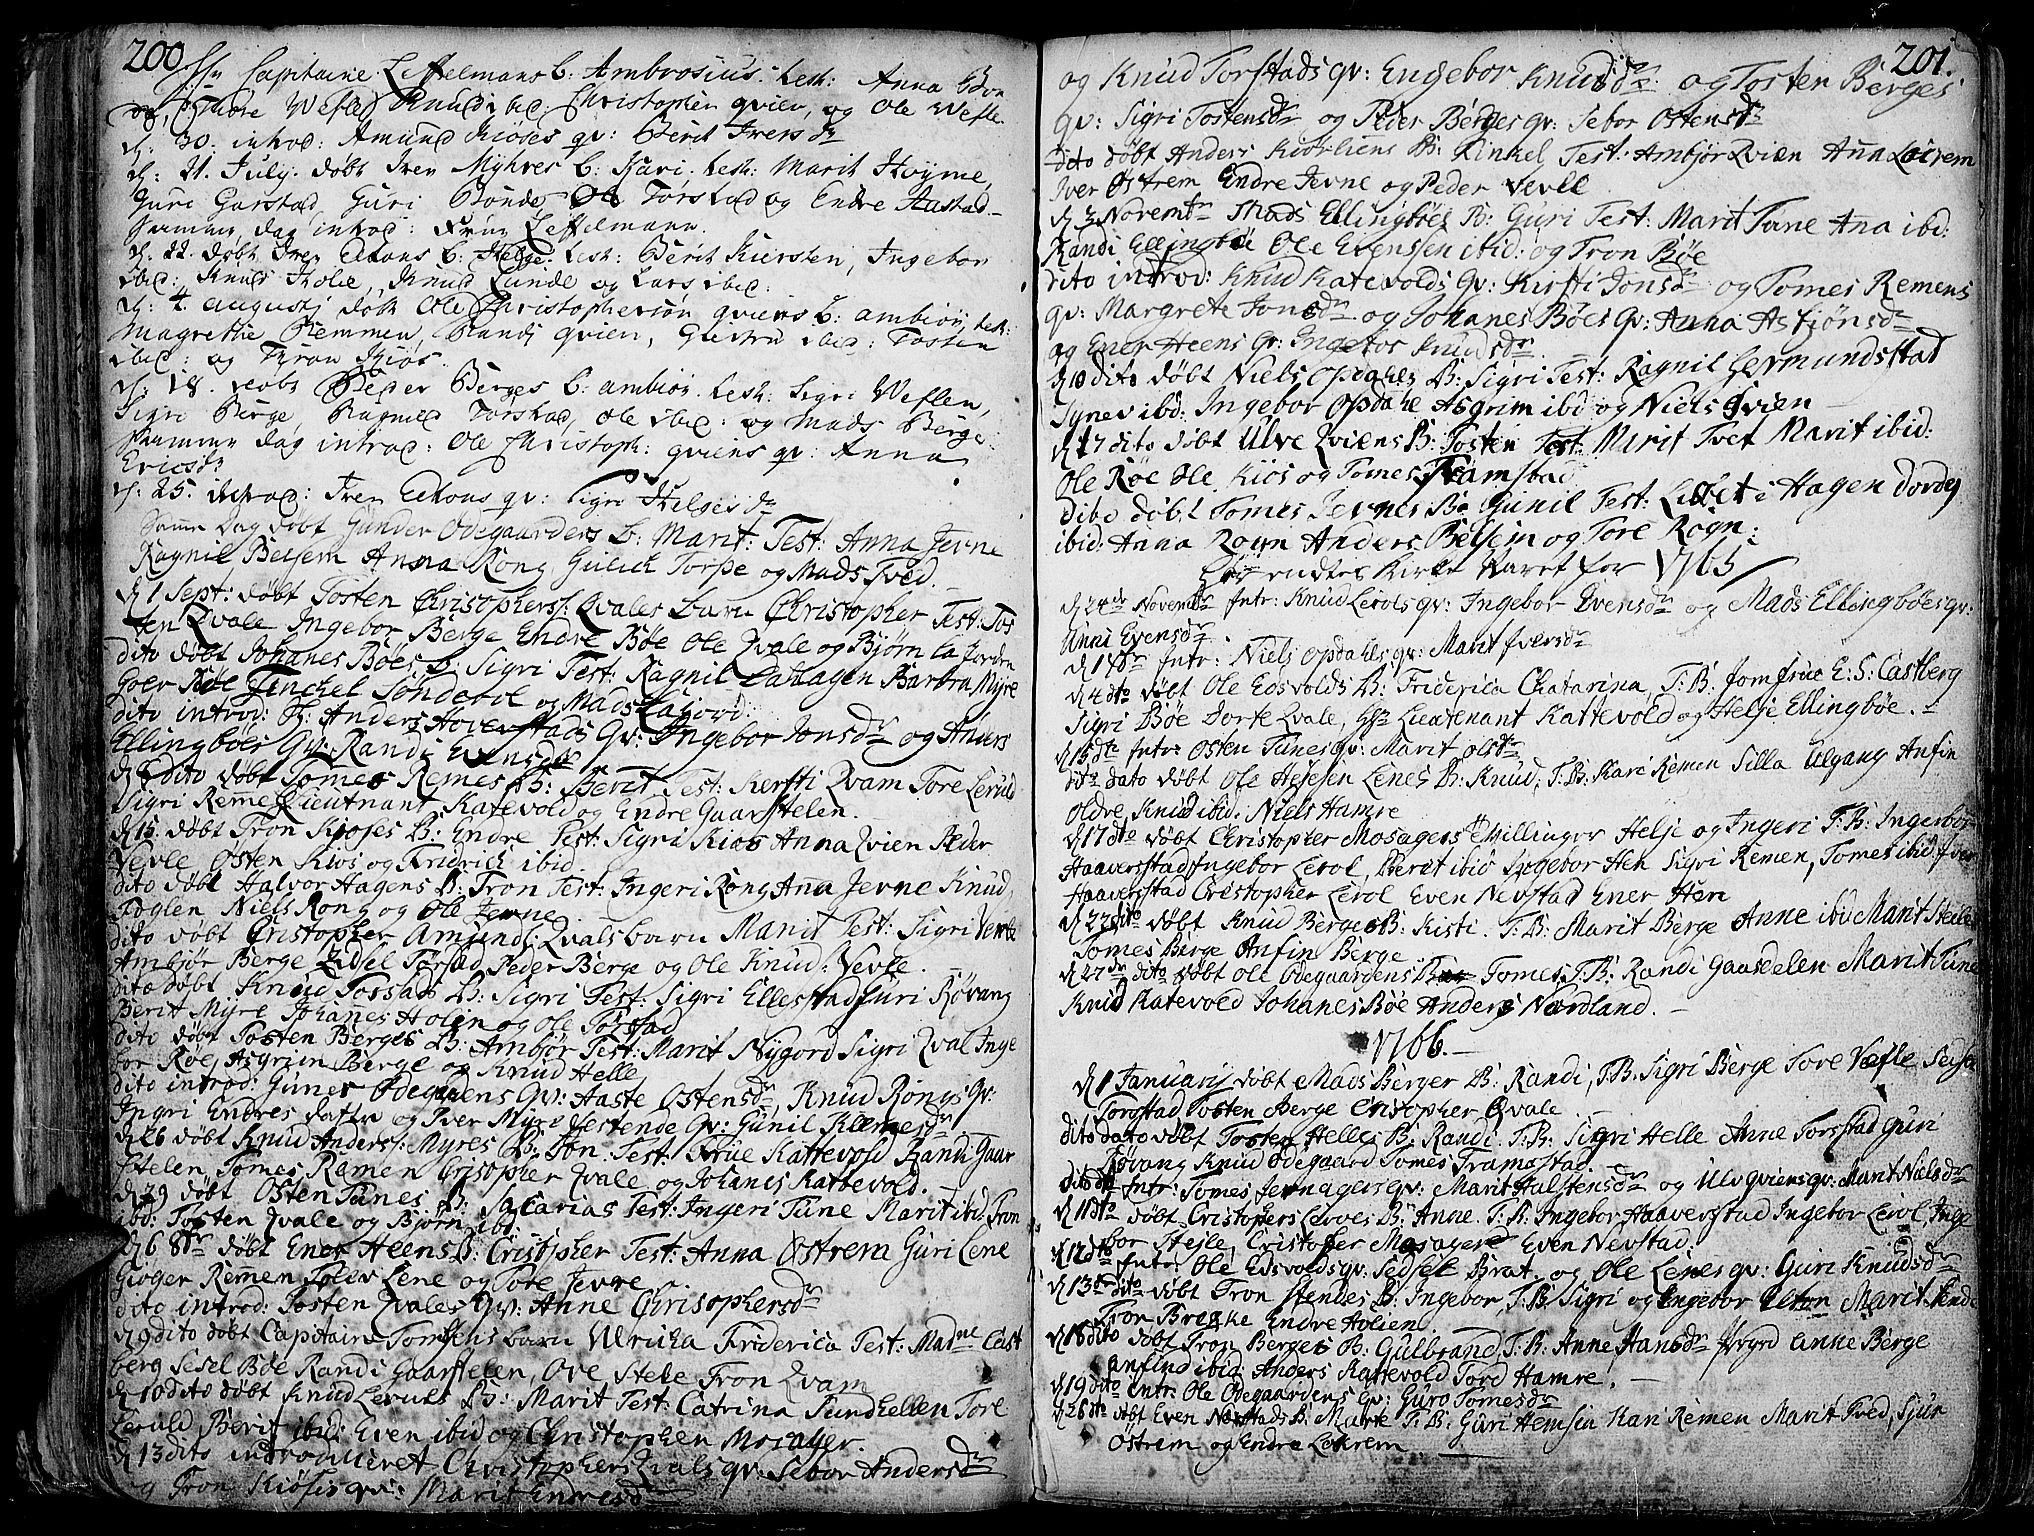 200
Hr Capitaine Leffelmans b: Ambrosius. test: Anna
Endre Wefle Knud ibd: Christopher qvien, og Ole Wefle
d: 30. introd: Amund Kioses qv: Berit Ivers dr
d: 21. July. døbt Iver Myhres b: Kari. test: Marit Høyme,
Guri Garstad, Guri Bonde Ole Torstad og Endre Aastad
Samme dag introd: Frue Leffelmann.
d: 22. døbt Iver Ekons b: Helge. test: Berit Kiersten, Ingebor
ibid: Knud Holie, Knud Lunde og Lars ibid:
d: 4. augustj døbt Ole Christophersøn qviens b: ambiør, test:
Magrethe Remmen, Randj qvien, Giertru ibid: Tosten
ibid: og Thron Kiøs.
d: 18. døbt Peder Berges b: ambiør. test: Sigri Weflen,
Sigri Berge, Ragnild Torstad, Ole ibid: og Mads Berge
Samme dag introd: Ole Christoph: qviens qv: Anna
Ericsdr
d: 25. introd: Iver Ekons qv: Sigri Helges dr
Samme Dag døbt Gunder Ødegaarders b: Marit: Test: Anna Jevne
Ragnil Belsem Anna Rong Gulick Torpe og Mads Tved.
d 1 Sept: døbt Tosten Christophers: Qvales barn Christopher Test: Tos
ten Qvale Ingebor Berge Endre Bøe Ole Qvale og Bjørn
dito døbt Johanes Bøes b: Sigri Test: Ragnil Dalhagen Barbra Myre
Goer Røe Finckel Sondebol og Mads
dito introd: Anders Høverstads Qv: Ingebor Jonsdr og Anders
Ellingbøes Qv: Randi Evensdr
dito døbt Tomes Remes B: Berit Test: Kersti Qvam Tore Lerud
Sigri Reme Lieutnant Katevold og Endre Gaarstelen.
d 15. døbt Tron Kjoses B: Endre Test: Sigri Kios Anna Qvien Peder
Vefle Osten Kios og Fridrich ibid
dito døbt Halvor Hagens B: Tron Test: Ingeri Rong Anna Jevne Knud
Foglen Niels Rong og Ole Jevne
dito døbt Cristopher Amunds: Qvals barn Marit Test: Sigri Vefle
Ambjør Berge Torstad Peder Berge og Ole Knud: Vevle.
dito døbt Knud Torstads B: Sigri Test: Sigri Ellestad Guri Røvang
Berit Myre Johanes Holin og Ole Torstad
dito døbt Tosten Berges B: Ambjør Test: Marit Nygord Sigri Qval Inge
bor Røe Asgrim Berge og Knud Helle
dito introd: Guner Ødegaardens Qv: Aaste Ostensdr, Knud Rongs Qv:
Ingri Endres dattr og Iver Myre Qv: Gunil Klemesdr
d 26 døbt Knud Anders: Myres B: Jon. Test: Frue Kattevold Randi Gaar
stelen Tomes Remen Cristopher Qvale og Johanes Kattevold.
d 29 døbt Osten Tunes B: Sacarias Test: Ingeri Tune Marit ibid: Tron
ibd: Tosten Qvale og Bjørn ibd:
d 6 8br døbt Ener Heens B: Cristopher Test: Anna Østrem Guri Lene
Giøger Remen Tolev Lene og Tore Jevne
dito introd: Tosten Qvales Qv: Anne Christophersdr
d 9 dito døbt Capitain Tomsens barn Ulricka Friderica Test: Madme Cast
berg Sesel Bøe Randi Gaarstelen, Ove Stele Tron Qvam
d 10 dito døbt Knud Leruds B: Marit Test: Catrina Sundhellen Tore
Lerudd Berit ibid: Even ibid og Christophen Mosager.
d 13 dito introduceret Christophers Qvals qv: Sebor Andersdr
og Tron Kiøses qv: Marit Endresdr
201.
og Knud Torstads qv: Engebor Knudsdr og Tosten Berges
qv: Sigri Tostensdr og Peder Berges qv: Sebor Ostensdr
dito døbt Anders Kiorliens B: Kinkel Test: Ambjør Qvien Anna Loerem
Iver Østrem Endre Jevne og Peder Vevle
d 3 Novembr Mads Ellingbøes B: Guri Test: Marit Tune Ana ibid:
Randi Ellingbøe Ole Evensen ibid: og Tron Bøe
dito introd: Knud Katevolds Qv: Kirsti Jonsdr og Tomes Remens
qv: Margrete Jonsdr og Johanes Bøes Qv: Anna Asbjønsdr
og Ener Heens Qv: Ingebor Knudsdr
d 10 dito døbt Niels Opdahls B: Sigri Test: Ragnil Germundstad
Synev ibd: Ingebor Opdahl Asgrim ibd og Niels Qvien
d 17 dito døbt Ulve Qviens B: Tosten Test: Marit Tvet Marit ibid:
Ole Røe Ole Kios og Tomes Framstad
dito døbt Tomes Jevnes B: Gunil Test: Lisbet i Hagen Dordej
ibid: Anna Rogn Anders Belsem og Tore Rogn:
her endtes Kirke Aaret for 1765
d 24de Novembr Intr: Knud Lerols qv: Ingebor Evensdr og Mads Ellingbøes qv:
Anni Evensdr
d 1 Xbr Intr: Niels Opdahls qv: Marit Iversdr
d 4 dto døbt Ole Edsvolds B: Friderica Chatarina, T: B: Jomfrue E: S: Castberg
Sigri Bøe Dorte Qvale, Hr Lieutenant Kattevold og Helje Ellingbøe.
d 15 dto Intr: Osten Tunes qv: Marit Olsdr
dito dato døbt Ole Helsesen Lenes B: Knud, T: B: Kari Remen Silla Ulgang Anfin
Oldre Knud ibid. Niels Hamre
d 17 dto døbt Christopher Mosagers Tvillinger Helje og Ingeri T: B: Ingerbor
Haaverstad Ingebor Lerol, Beret ibid Ingebor Hen Sigri Remen, Tomes ibid Iver
Haaverstad Cristopher Lerol Even Nevstad Ener Hen
d 22 dito døbt Knud Berges B: Kisti. T: B: Marit Berge Anne ibid Marit Stelle
Tomes Berge Anfin Berge
d 27de dito døbt Ole Ødegaardens B: Tomes, T: B: Randi Gaasdelen Marit Tune
Knud Katevold Johanes Bøe Anders Nordland.
1766.
d 1 Januarij døbt Mads Berger B: Randi, T: B: Sigri Berge Tore Vefle
Torstad Tosten Berge Cristopher Qvale
dito dato døbt Tosten Helles B: Randi. T: B: Sigri Helle Anne Torstad Guri
Røvang Knud Ødegaard Tomes Framstad
dito Intr: Tomes Jernagers qv: Marit Halstensdr og Ulv qviens qv: Marit Nielsdr
d 11 dto døbt Cristophers Lerves B: Anne. T: B: Ingebor Haaverstad Ingebor Lerol Inge
bor Stejle, Cristopher Mosager Even Nevstad.
d 12 dto Intr: Ole Edsvolds qv: Sedsel Brat og Ole Lenes qv: Guri Knudsdr
d 13 dito døbt Tron Stendes B: Ingebor T: B: Sigri og Ingebor Marit Stende
Tron Brecke Endre Holien
d 18 dito døbt Tron Berges B: Gulbrand, T: B: Anne Hansdr Anne Berge
Anfind ibid: Anders Kattevold Tord Hamre.
d 19 dito Intr: Ole Ødegaardens Qv: Guro Tomesdr
d 26 dto døbt Even Nevstads B: Marte T: B: Guri Hemsin Kari Remen Marit Tved, Sjur
Østrem og Endre Lokrem